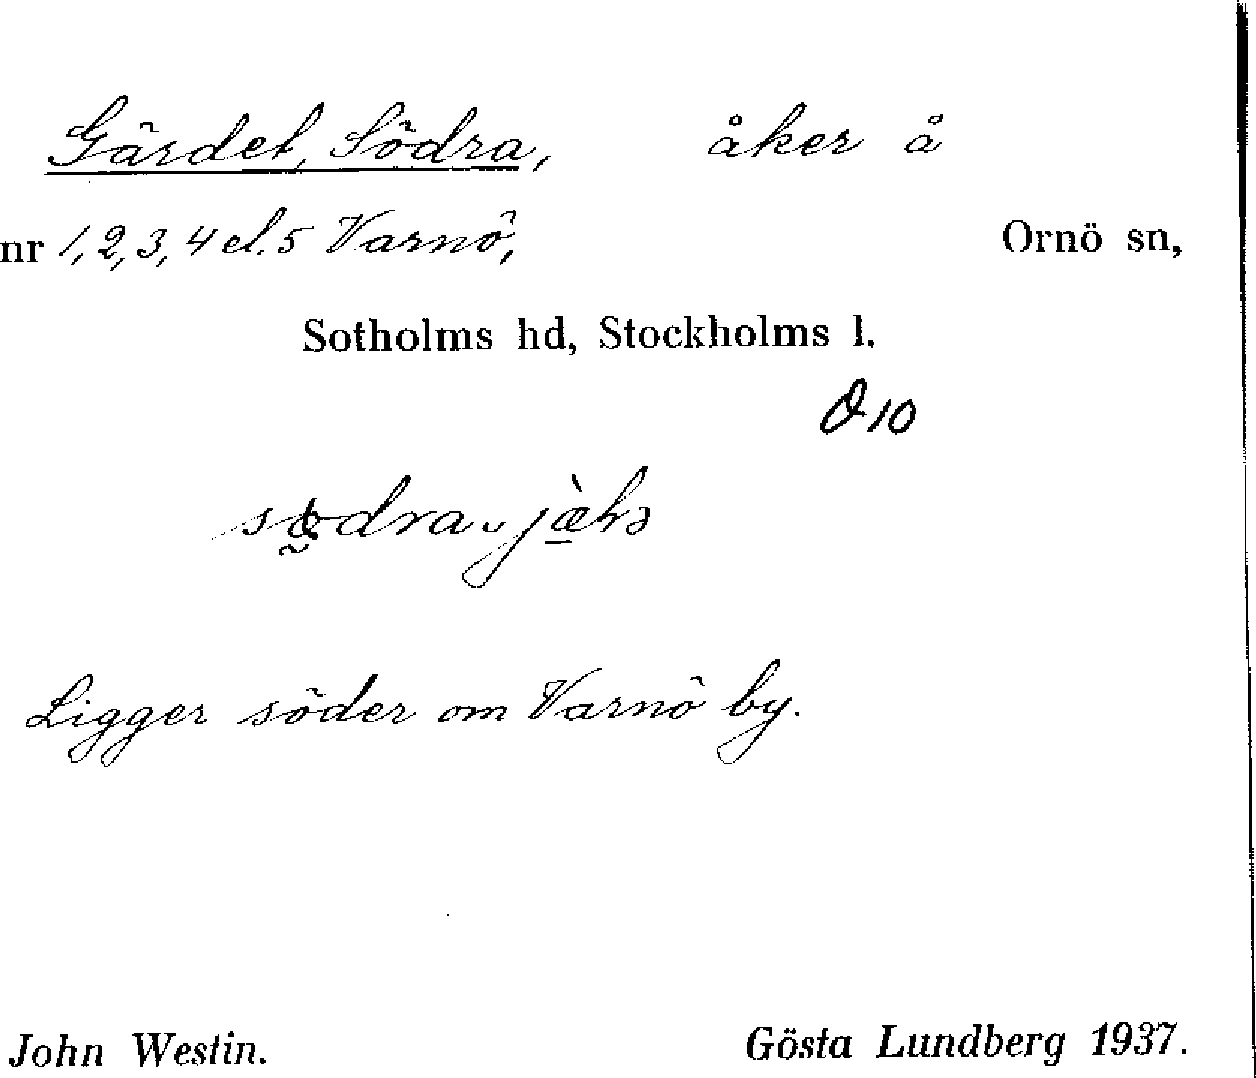 Gärdet, Södra, åker å
nr 1, 2, 3, 4 el. 5 Varnö, Ornö sn,
Sotholms hd, Stockholms l.
10
Ligger söder om Varnö by.
John Westin. Gösta Lundberg 1937.